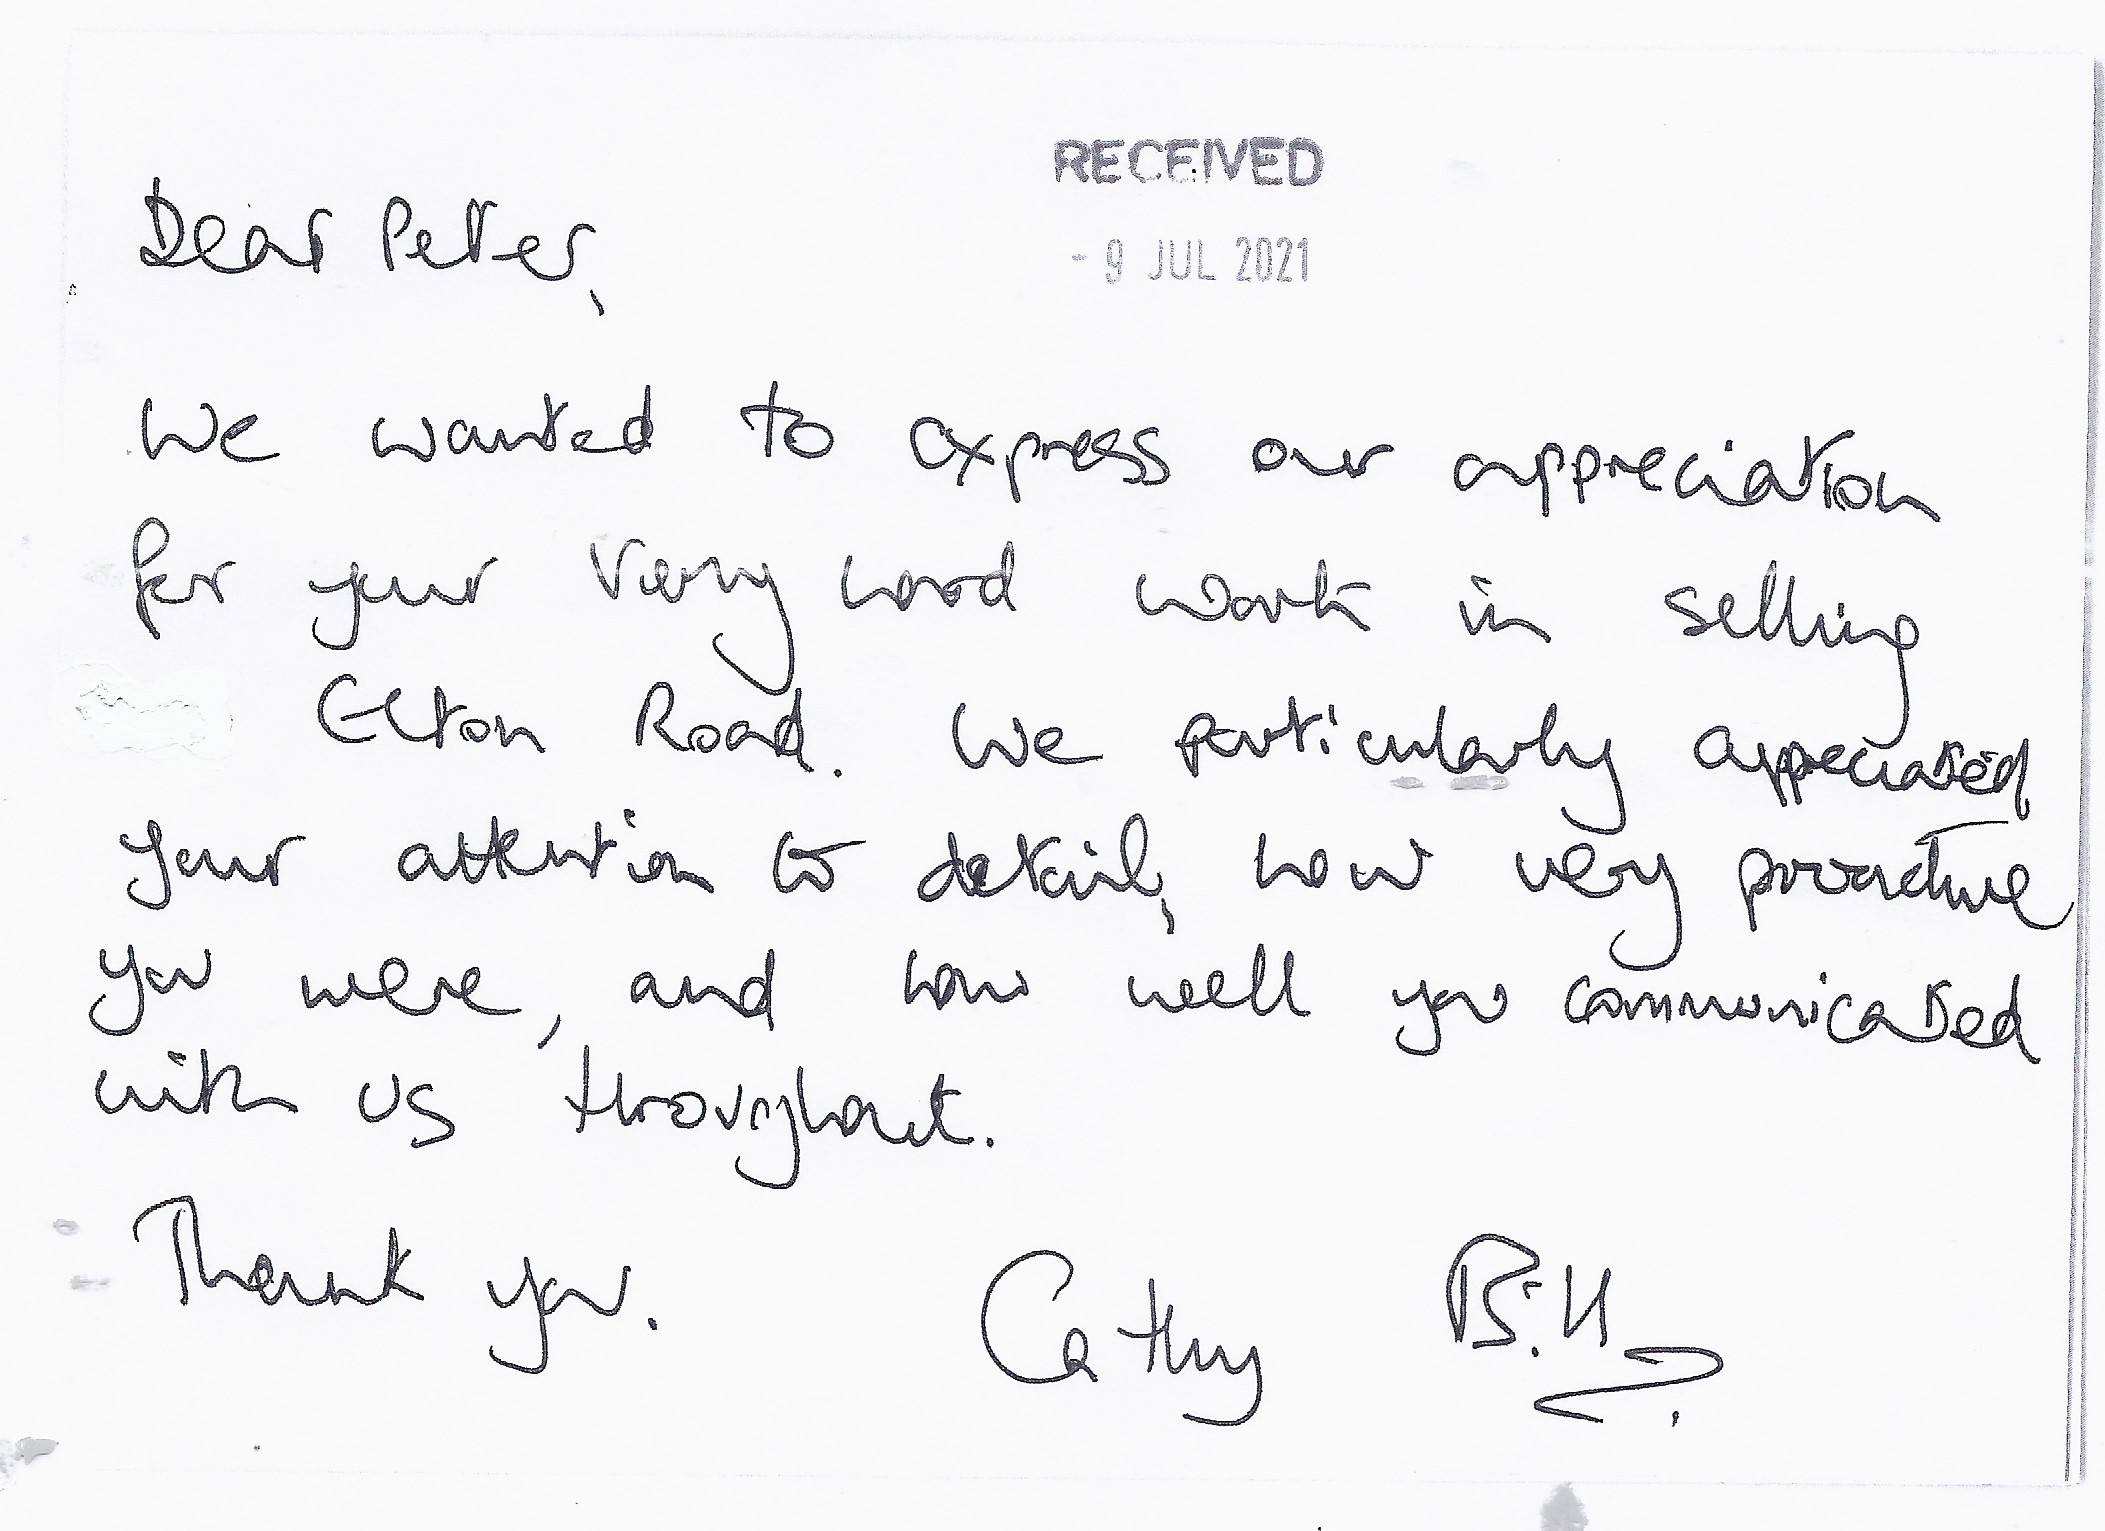 RECEIVED
- 9 JUL 2021
Dear Peter,
We wanted to express our appreciation
for your very hard work in selling
Elton Road. We particularly appreciated
your attention to detail, how very proactive
you were, and how well you communicated
with us throughout.
Thank you.
Cathy Bill